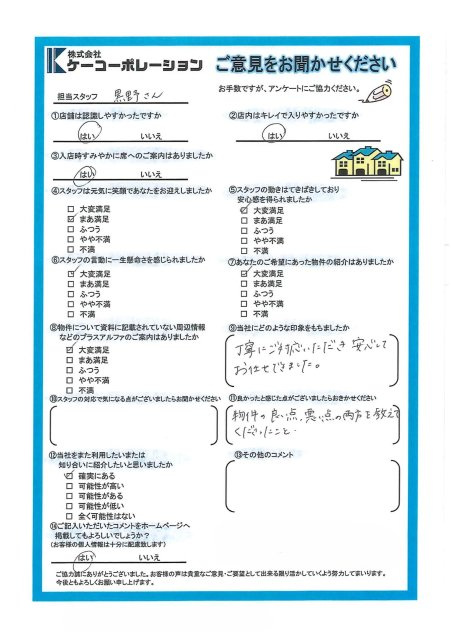 株式会社
ケーコーポレーション
ご意見をお聞かせください
お手数ですが、アンケートにご協力ください。
担当スタッフ 黒野さん
①店舗は認識しやすかったですか
はい いいえ
②店内はキレイで入りやすかったですか
はい いいえ
③入店時すみやかに席へのご案内はありましたか
はい いいえ
④スタッフは元気に笑顔であなたをお迎えしましたか
大変満足
まあ満足
ふつう
やや不満
不満
⑤スタッフの動きはてきぱきしており
安心感を得られましたか
大変満足
まあ満足
ふつう
やや不満
不満
⑥スタッフの言動に一生懸命さを感じられましたか
大変満足
まあ満足
ふつう
やや不満
不満
⑦あなたのご希望にあった物件の紹介はありましたか
大変満足
まあ満足
ふつう
やや不満
不満
⑧物件について資料に記載されていない周辺情報
などのプラスアルファのご案内はありましたか
大変満足
まあ満足
ふつう
やや不満
不満
⑨当社にどのような印象をもちましたか
丁寧にご対応いただき 安心して
お任せできました。
⑩スタッフの対応で気になる点がございましたらお聞かせください
⑪良かったと感じた点がございましたらおきかせください
物件の良い点、悪い点の両方を教えて
くださったこと。
⑫当社をまた利用したいまたは
知り合いに紹介したいと思いましたか
確実にある
可能性が高い
可能性がある
可能性が低い
全く可能性はない
⑬その他のコメント
⑭ご記入いただいたコメントをホームページへ
掲載してもよろしいでしょうか？
（お客様の個人情報は十分に配慮致します）
はい いいえ
ご協力誠にありがとうございました。お客様の声は貴重なご意見・ご要望として出来る限り活かしていくよう努力してまいります。
今後ともよろしくお願い申し上げます。